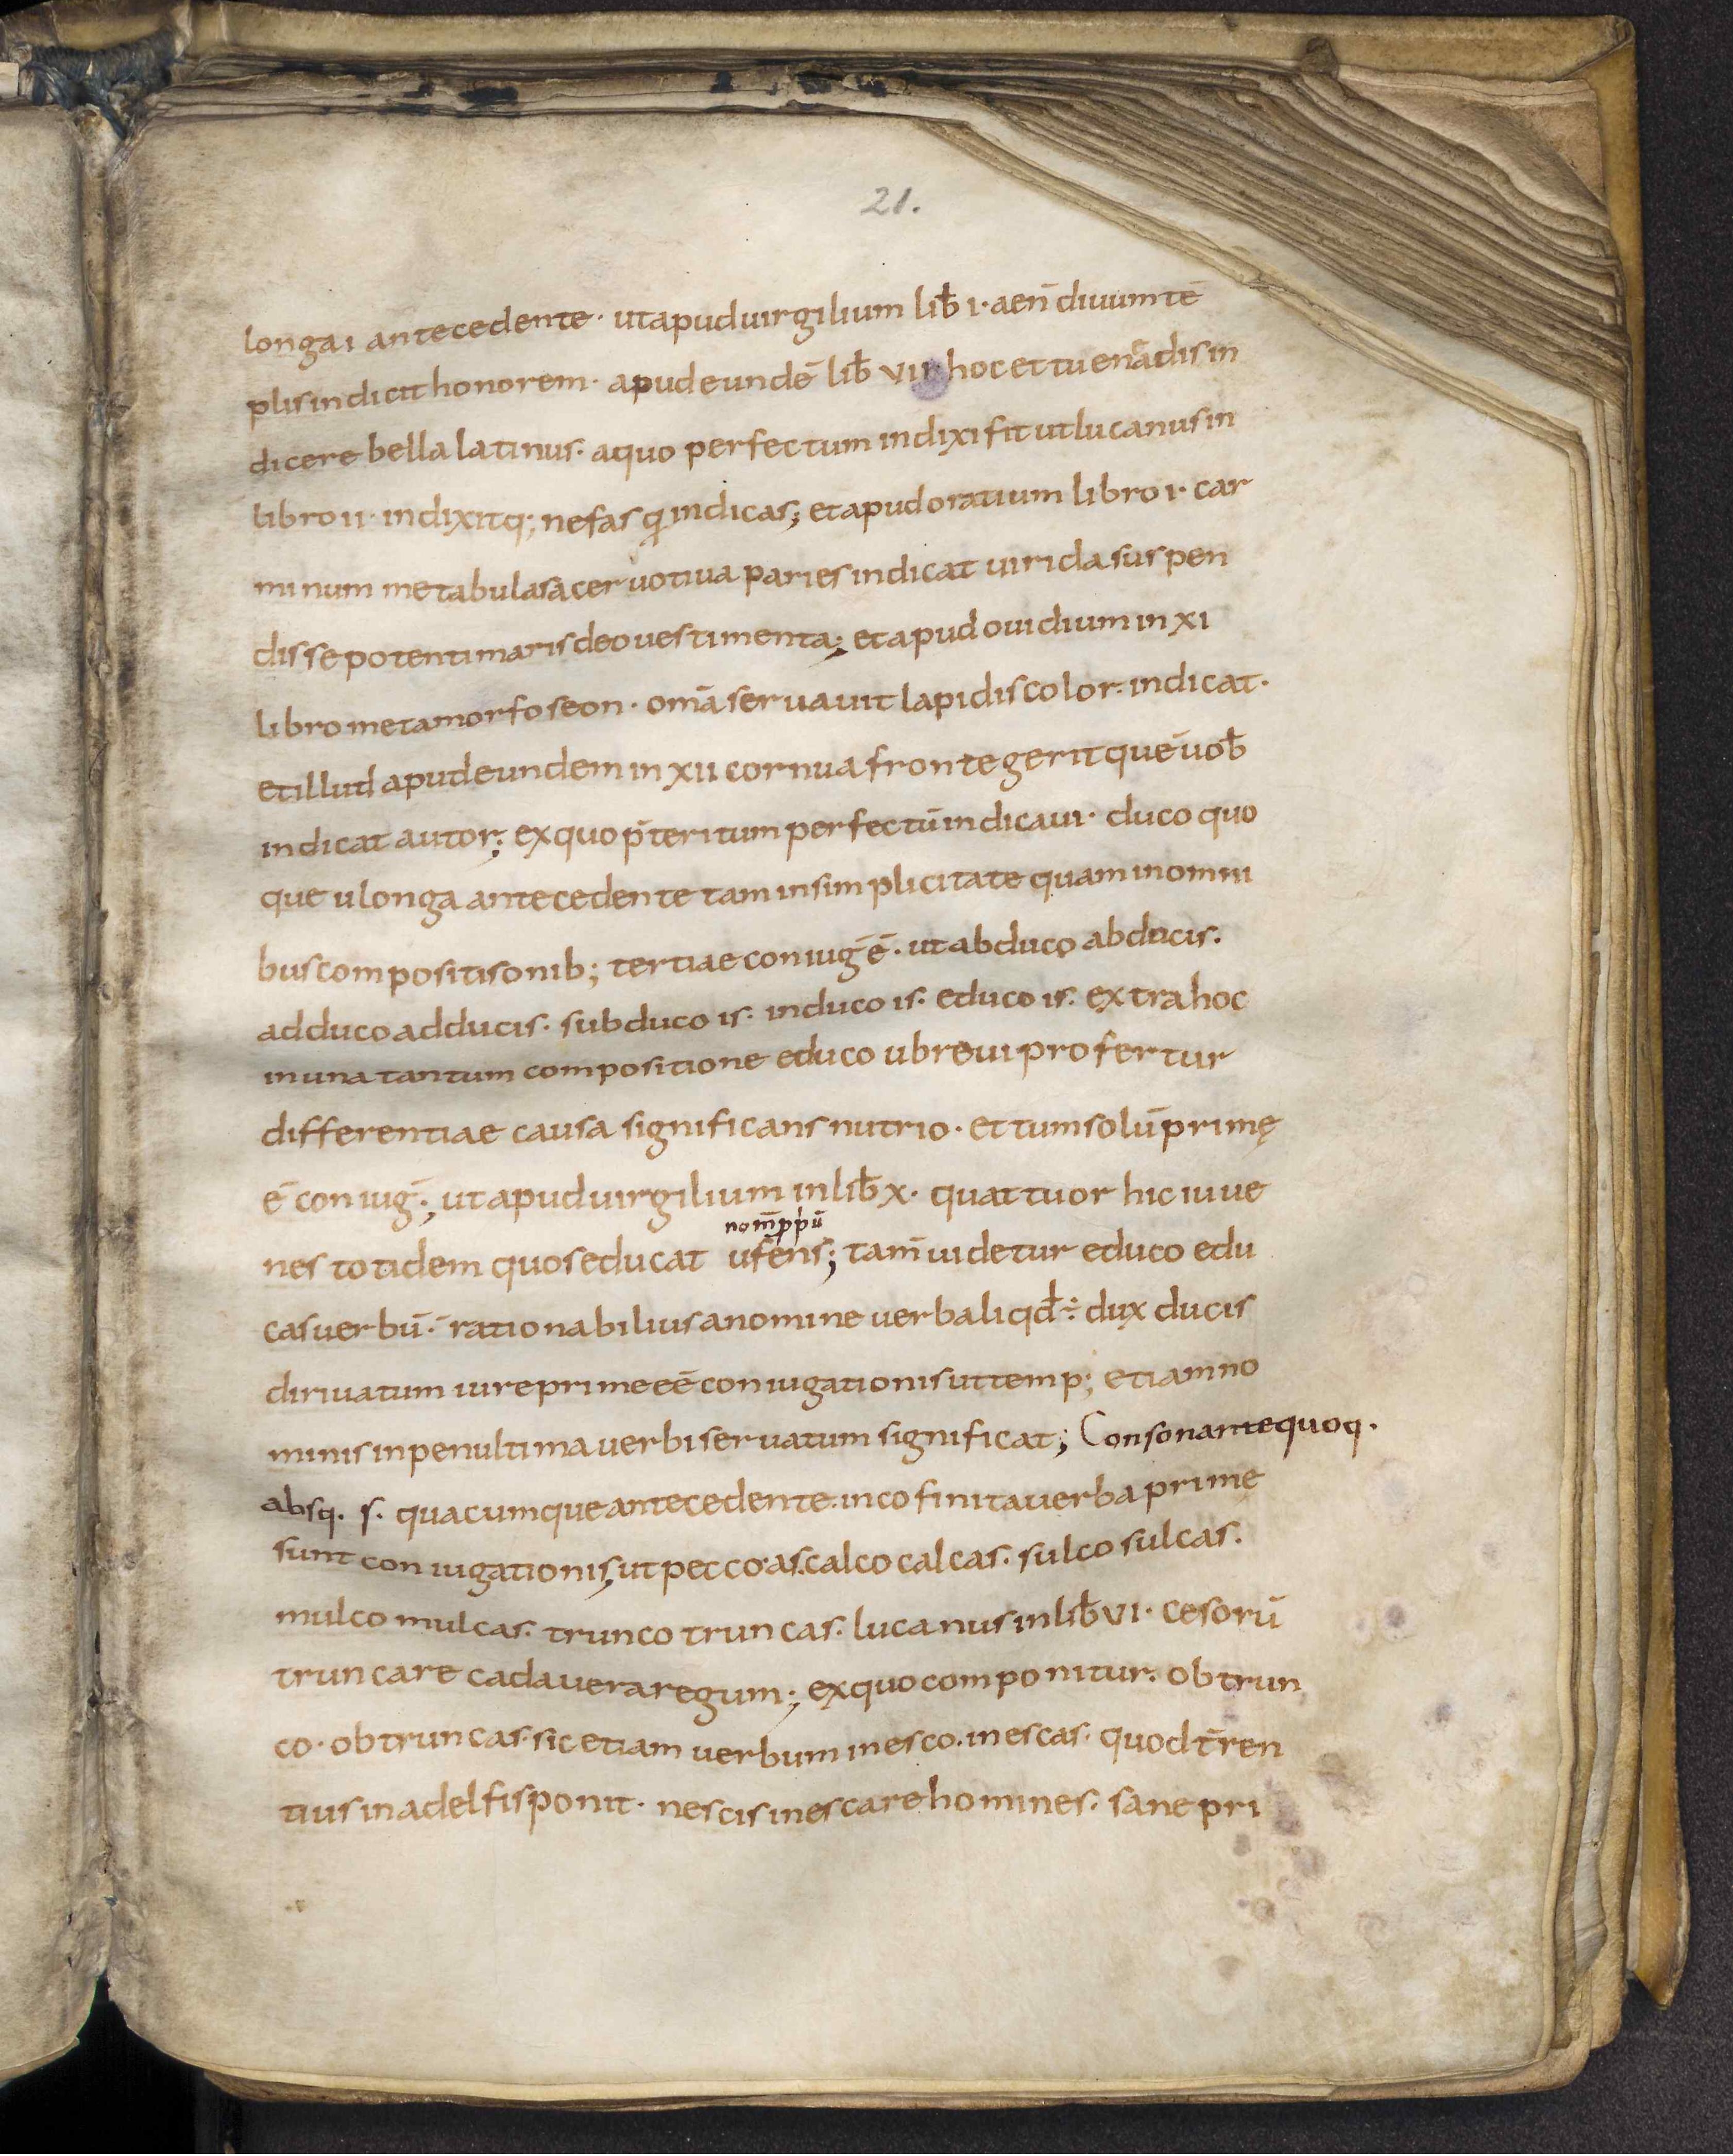 21.
longa i antecedente · ut apud uirgilium lib̄ i · aen̄ diuum tē
plis indicit honorem · apud eundē lib̄ vii · hoc et tu enādis in
dicere bella latinus · a quo perfectum indixi fit ut lucanus in
libro ii · indixitq; nefas q indicas; et apud oratium libro i · car
minum me tabula sacer uotiua paries indicat uuida suspen
disse potenti maris deo uestimenta; et apud ouidium in xi
libro metamorfoseon · omā seruauit lapidis color: indicat ·
et illud apud eundem in xii cornua fronte gerit quē uob̄
indicat autor; ex quo p̄teritum perfectū indicaui · duco quo
que u longa antecedente tam in simplicitate quam in omni
bus compositisonib; tertiae coniuḡ ē · ut abduco abducis ·
adduco adducis · subduco is · induco is · educo is · extra hoc
in una tantum compositione educo u breui profertur
differentiae causa significans nutrio · et tum solū primę
ē coniuḡ ·; ut apud uirgilium in lib̄ x · quattuor hic iuue
nom̄ pp̄iū
nes totidem quos educat ufens; tam̄ uidetur educo edu
cas uerbū · rationabilius a nomine uerbali qd ÷ dux ducis
diriuatum iure prime eē coniugationis ut temp; etiam no
minis in penultima uerbi seruatum significat; Consonante quoq ·
absq · s · quacumque antecedente in co finita uerba prime
sunt coniugationis, ut pecco · as · calco calcas · sulco sulcas ·
mulco mulcas · trunco truncas · lucanus in lib̄ vi · cesorū
truncare cadauera regum; ex quo componitur · obtrun
co · obtruncas · sic etiam uerbum inesco · inescas · quod t̄ren
tius in adelfis ponit · nescis inescare homines · sane pri